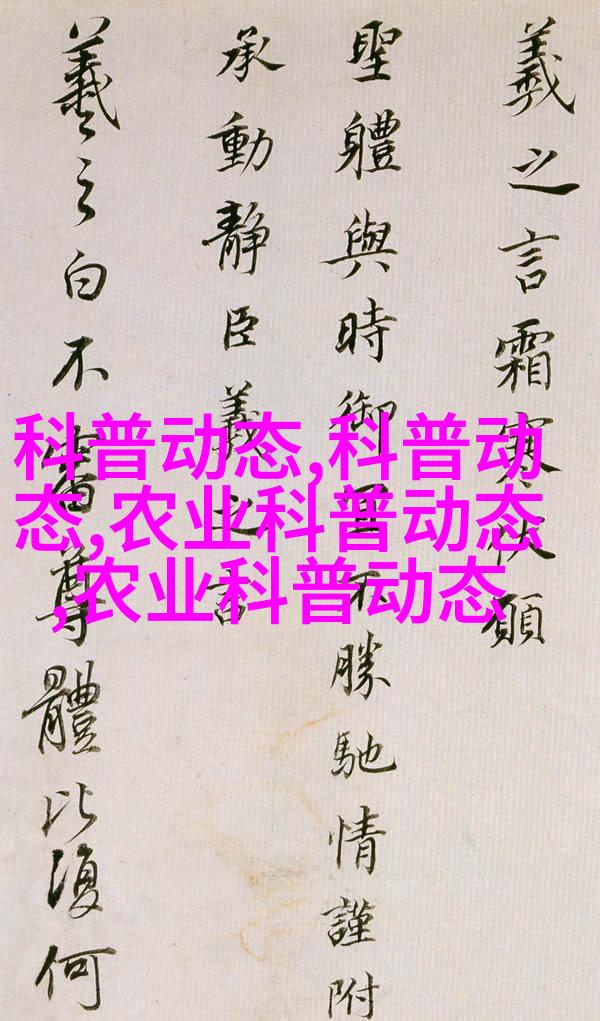 羲之言霜寒伏願
聖體與時御不勝馳情謹附
承動靜臣羲之言
羲之白不審尊體比復何
科普动态,科普动
态,农业科普动态
,农业科普动态